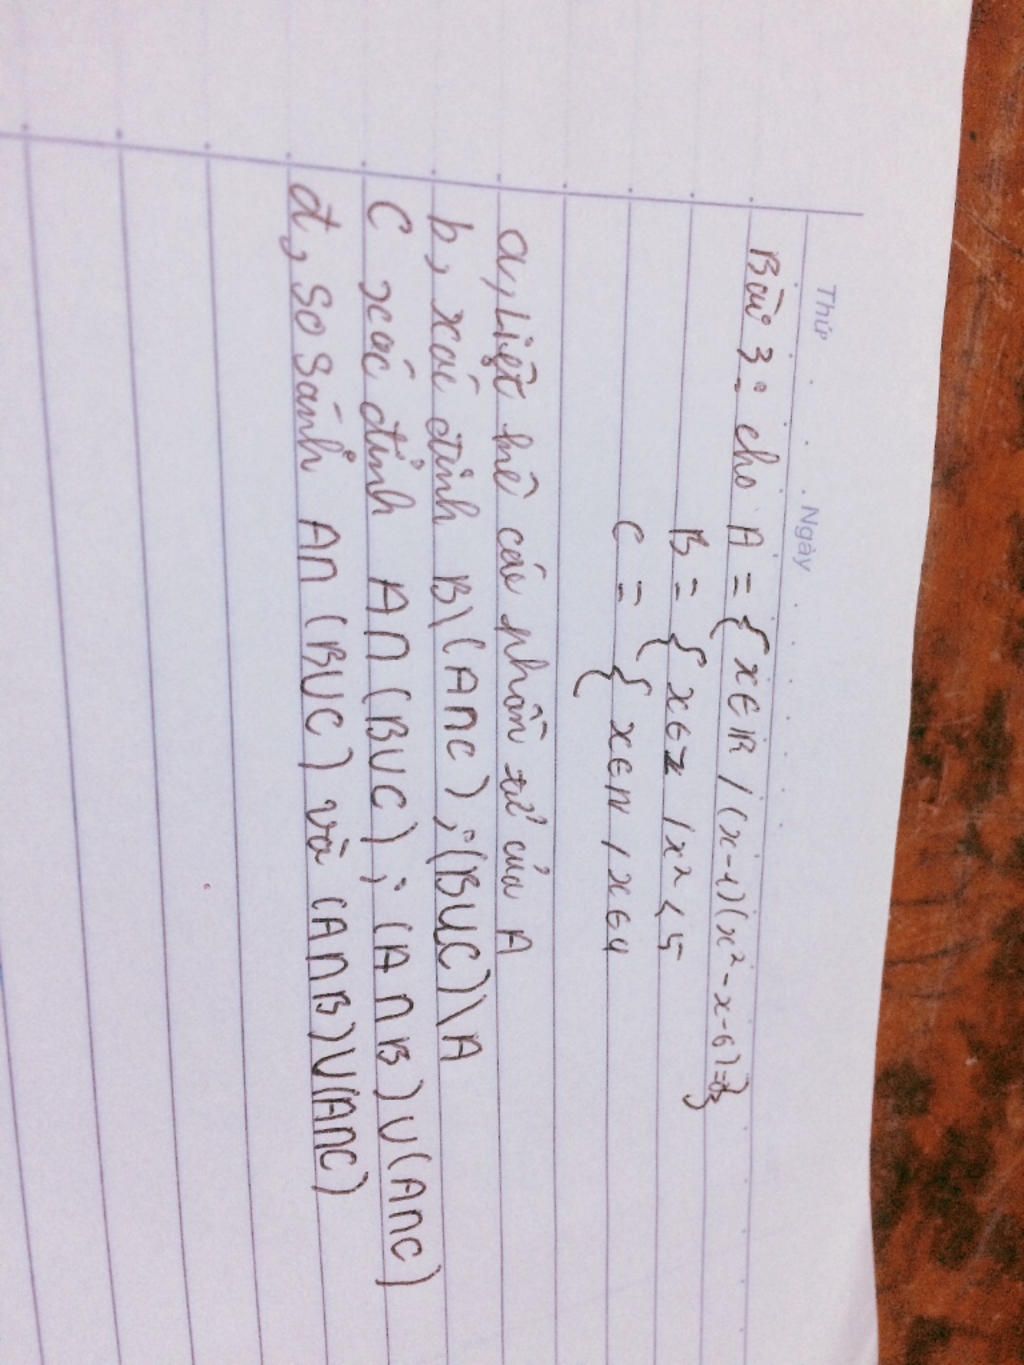 Thứ
Ngày
Bài 3: cho A = {x∈R / (x-1)(x²-x-6)=0}
B = {x∈Z / x² < 5
C = {x∈N / x ≤ 4
a, Liệt kê các phần tử của A
b, xác định B\(A∩C); (B∪C)\A
C xác định A∩(B∪C); (A∩B)∪(A∩C)
d, so sánh A∩(B∪C) và (A∩B)∪(A∩C)